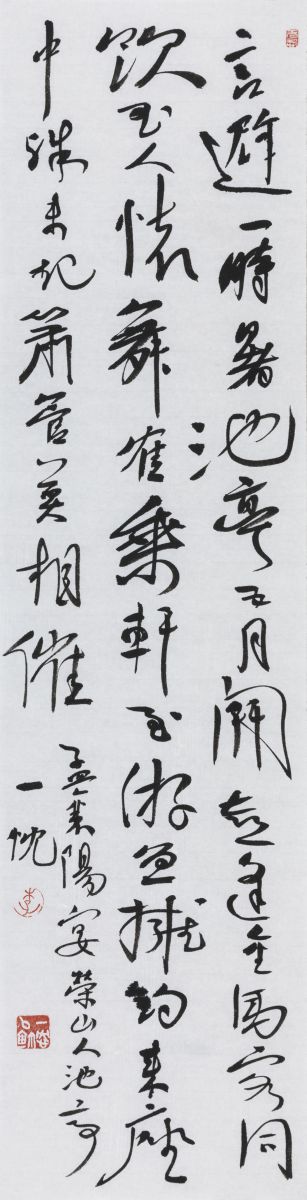 言避一時暑池亭五月開喜逢金馬客同
飲玉人懷舞隺乘軒至游魚擁釣來座
中殊未起簫管莫相催
孟襄陽宴榮山人池亭
一忱